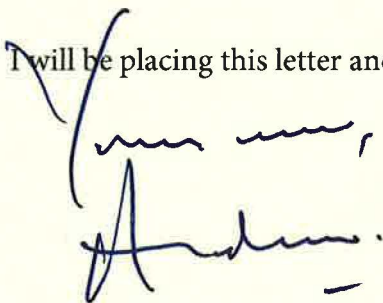 I will be placing this letter and
Yours ever,
Andrew.